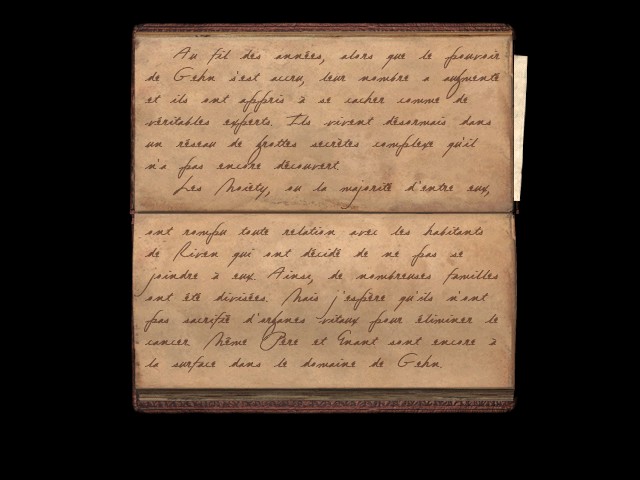 Au fil des années, alors que le pouvoir
de Gehn s'est accru, leur nombre a augmenté
et ils ont appris à se cacher comme de
véritables experts. Ils vivent désormais dans
un réseau de grottes secrètes complexe qu'il
n'a pas encore découvert.
Les Moiety, ou la majorité d'entre eux,
ont rompu toute relation avec les habitants
de Riven qui ont décidé de ne pas se
joindre à eux. Ainsi, de nombreuses familles
ont été divisées. Mais j'espère qu'ils n'ont
pas sacrifié d'organes vitaux pour éliminer le
cancer. Même Père et Enant sont encore à
la surface dans le domaine de Gehn.